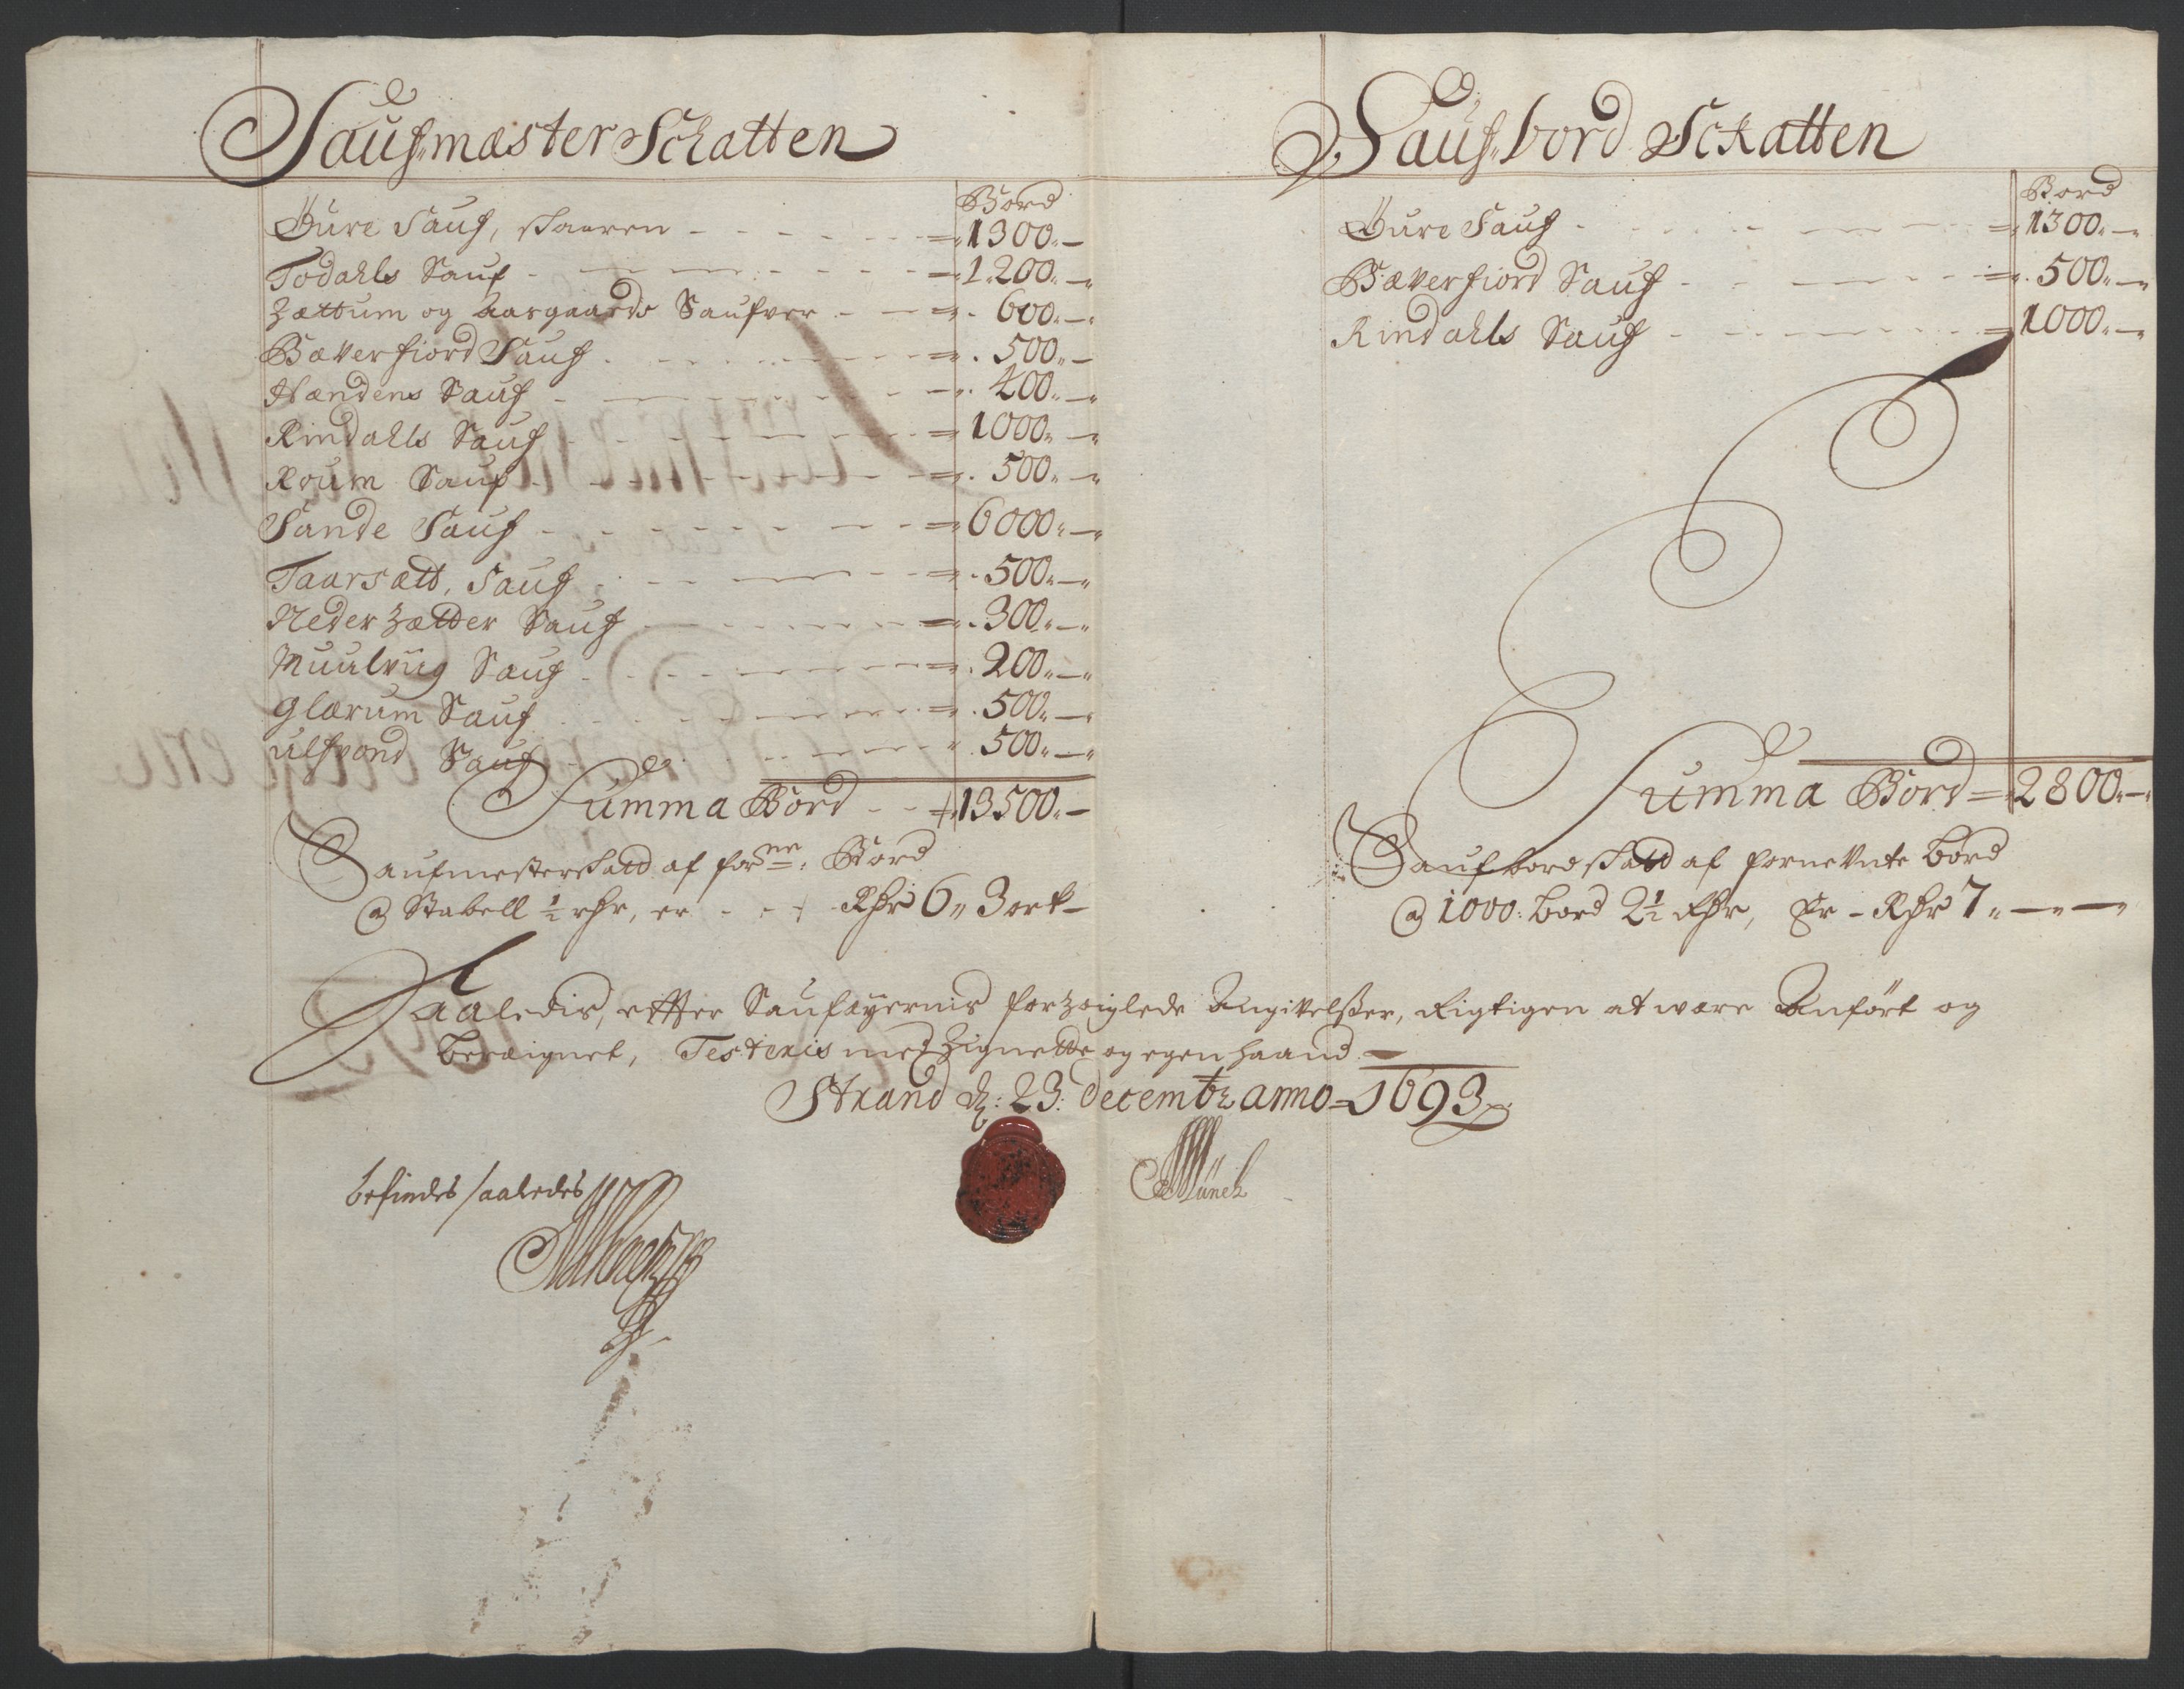 Saufmæster Schatten
Bord
Öure Sauf, skaaren - - - 1300 -
Todahls Sauf - - - 1200 -
Zættum og Aasgaards Saufver - - 600 -
Bæverfiord Sauf - - - 500 -
Hændens Sauf - - - 400 -
Rindahls Sauf - - - 1000 -
Roum Sauf - - - 500 -
Sande Sauf - - - 6000 -
Taarsætt, Sauf - - - 500 -
Neder Zætter Sauf - - - 300 -
Muulviig Sauf - - - 200 -
Glærum Sauf - - - 500 -
Ulfvond Sauf - - - 500 -
Summa Bord - - 13500 -
Saufmesterskatt af forne: Bord
@ Stabell ½ rdr, er - - - Rdr 6 " 3 ort -
Sauf bord Sckatten
Bord
Öure Sauf - - - 1300 -
Bæverfiord Sauf - - - 500 -
Rindahls Sauf - - - 1000 -
Summa Bord = 2800 -
Saufbordskatt af fornevnte bord
@ 1000: bord 2½ Rdr, Er - Rdr 7 " - " -
Saaledis, effter Saufæyernis forzeiglede Angivelsser, Rigtigen at være Anført og
beræignet, Testeris med Zignette og egen haand -
Strand d: 23: decembr anno 1693
befindes saaledes
Münch